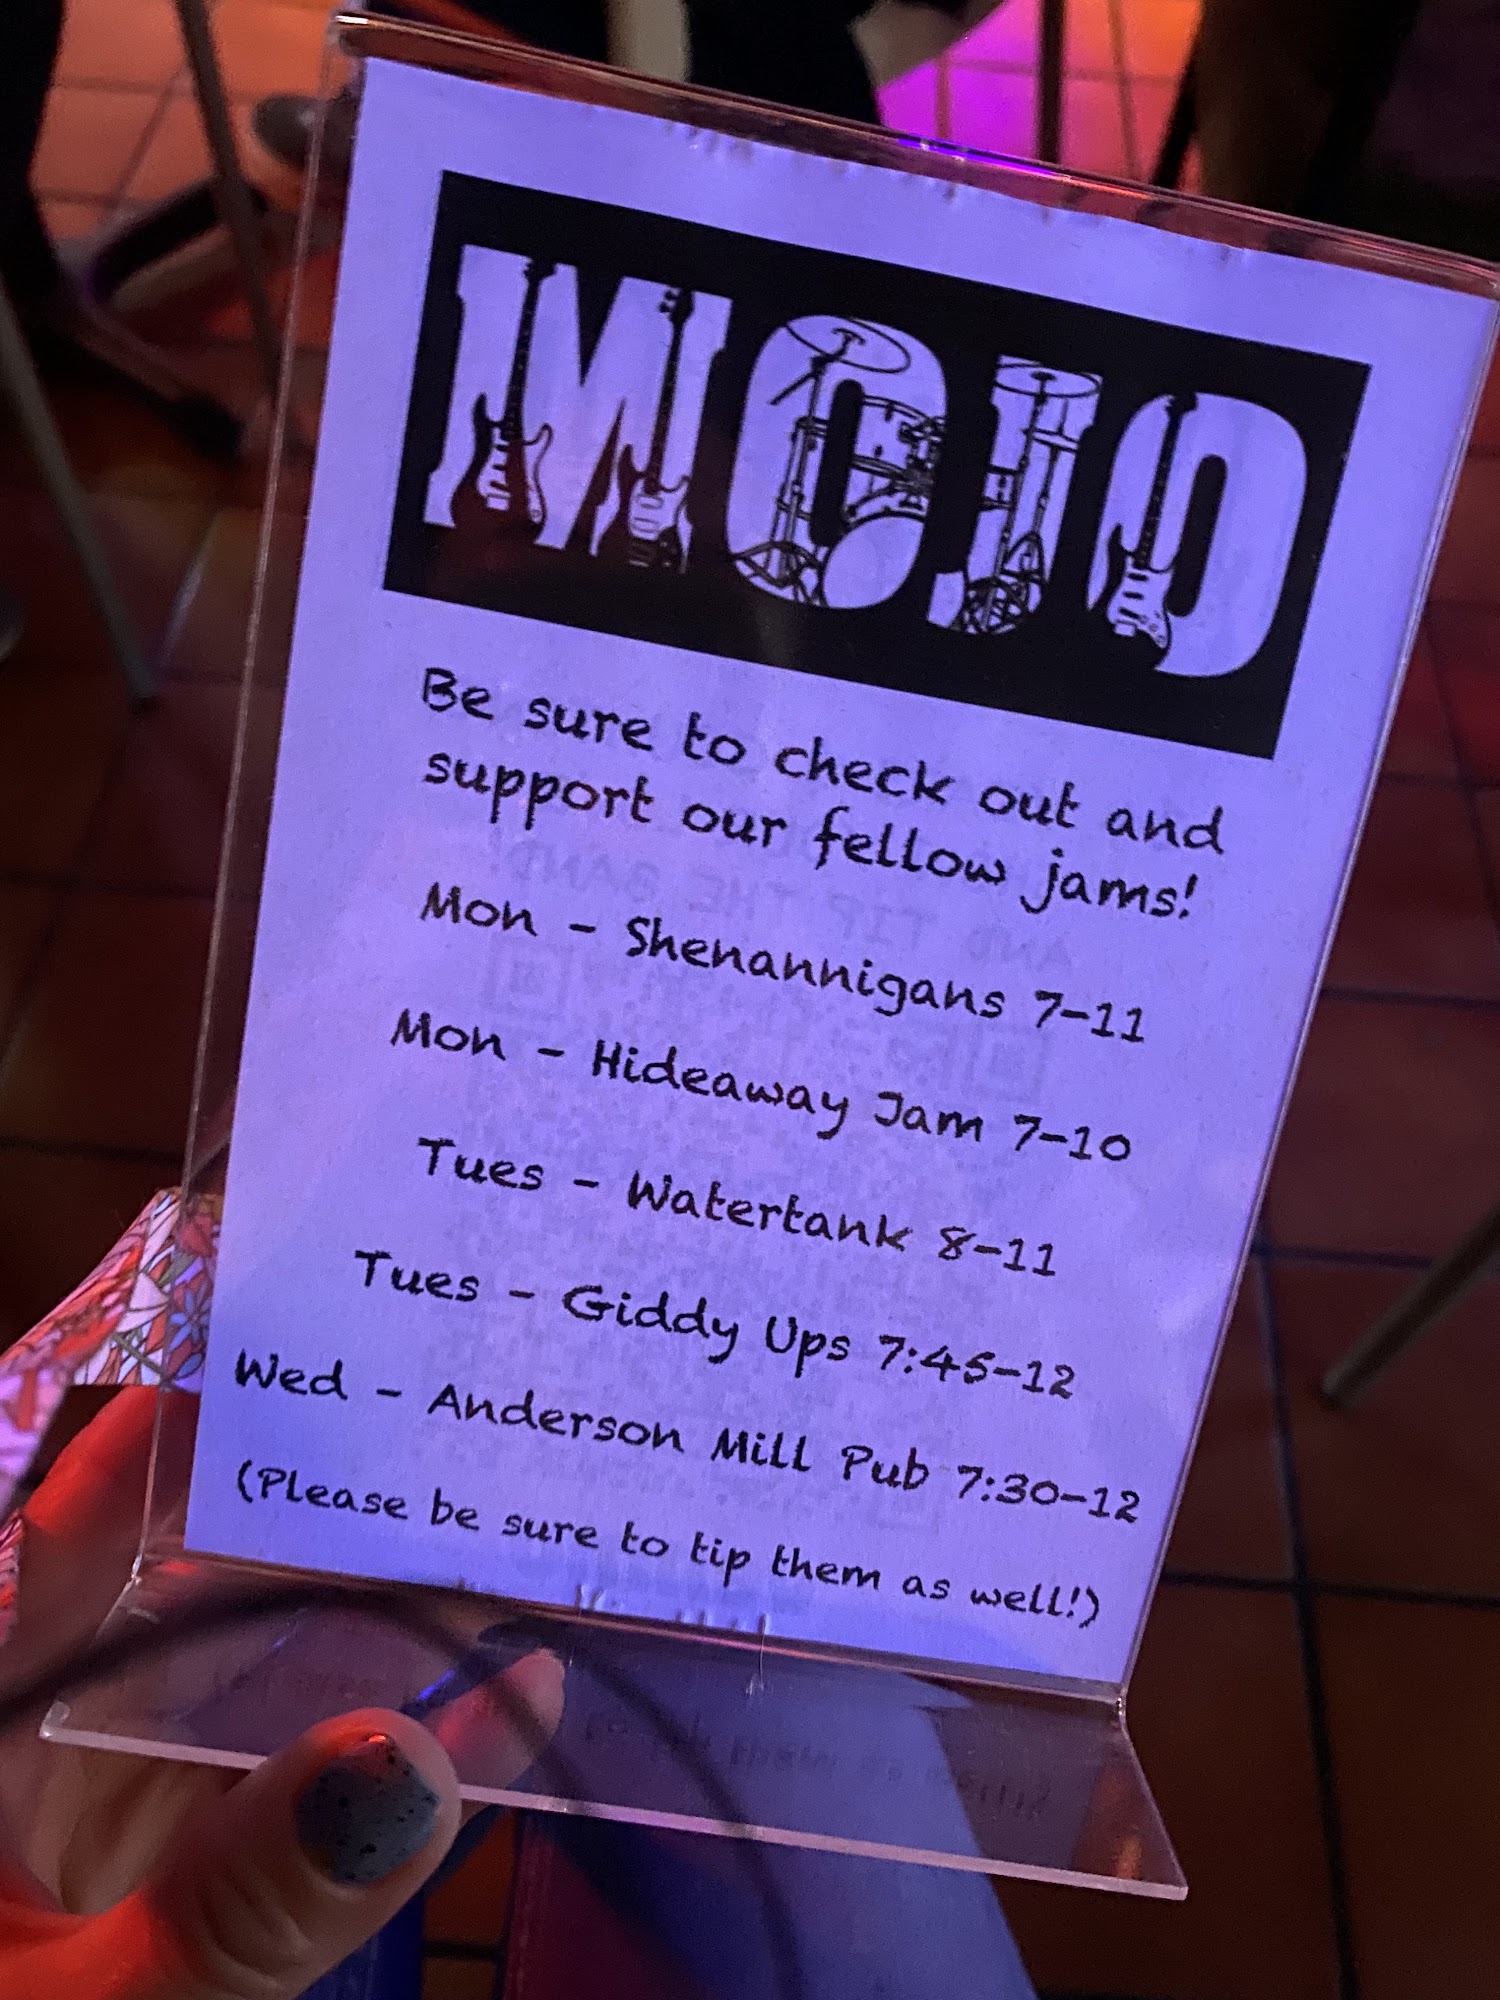 MOJO
Be sure to check out and
support our fellow jams!
Mon - Shenannigans 7-11
Mon - Hideaway Jam 7-10
Tues - Watertank 8-11
Tues - Giddy Ups 7:45-12
Wed - Anderson Mill Pub 7:30-12
(Please be sure to tip them as well!)
AND TIP THE BAND!